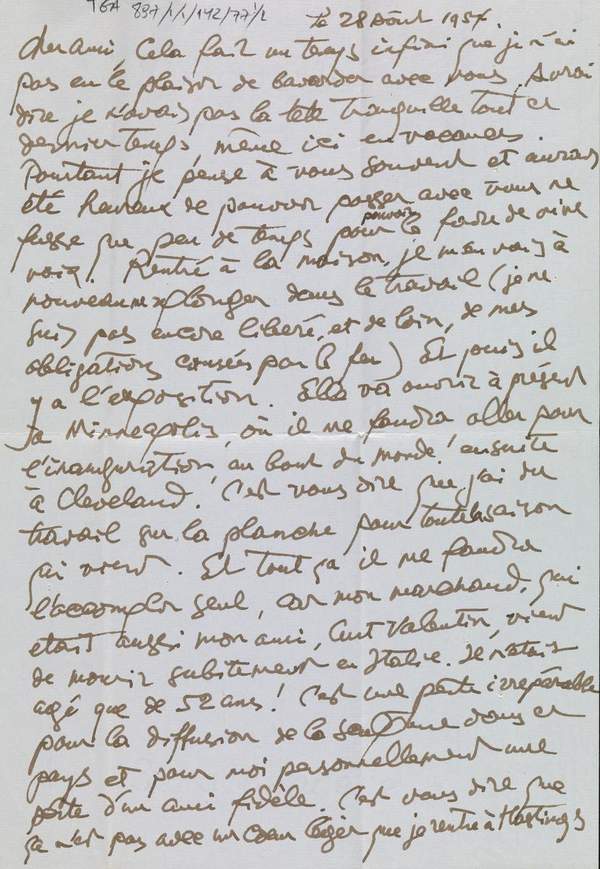 TGA 897/1/1/142/77 1/2
le 28 Août 1954.
Cher ami, Cela fait un temps infini que je n'ai
pas eu le plaisir de bavarder avec vous. A vrai
dire je n'avais pas la tête tranquille tout ce
dernier temps, même ici en vacances.
Pourtant je pense à vous souvent et aurais
été heureux de pouvoir passer avec vous ne
fusse que peu de temps pour pouvoir le faire de vive
voix. Rentré à la maison, je m'en vais à
nouveau me plonger dans le travail (je ne
suis pas encore liberé, et de loin, de mes
obligations causées par le feu) Et puis il
y a l'exposition. Elle va ouvrir à présent
à Minneapolis, où il me faudra aller pour
l'inauguration, au bout du monde! ensuite
à Cleveland. C'est vous dire que j'ai du
travail sur la planche pour toute la saison
qui vient. Et tout ça il me faudra
l'accomplir seul, car mon marchand, qui
etait aussi mon ami, Curt Valentin, vient
de mourir subitement en Italie. Il n'etait
agé que de 52 ans! C'est une perte irreparable
pour la diffusion de la sculpture dans ce
pays et pour moi personnellement une
perte d'un ami fidèle. C'est vous dire que
ça n'est pas avec un coeur léger que je rentre à Hastings